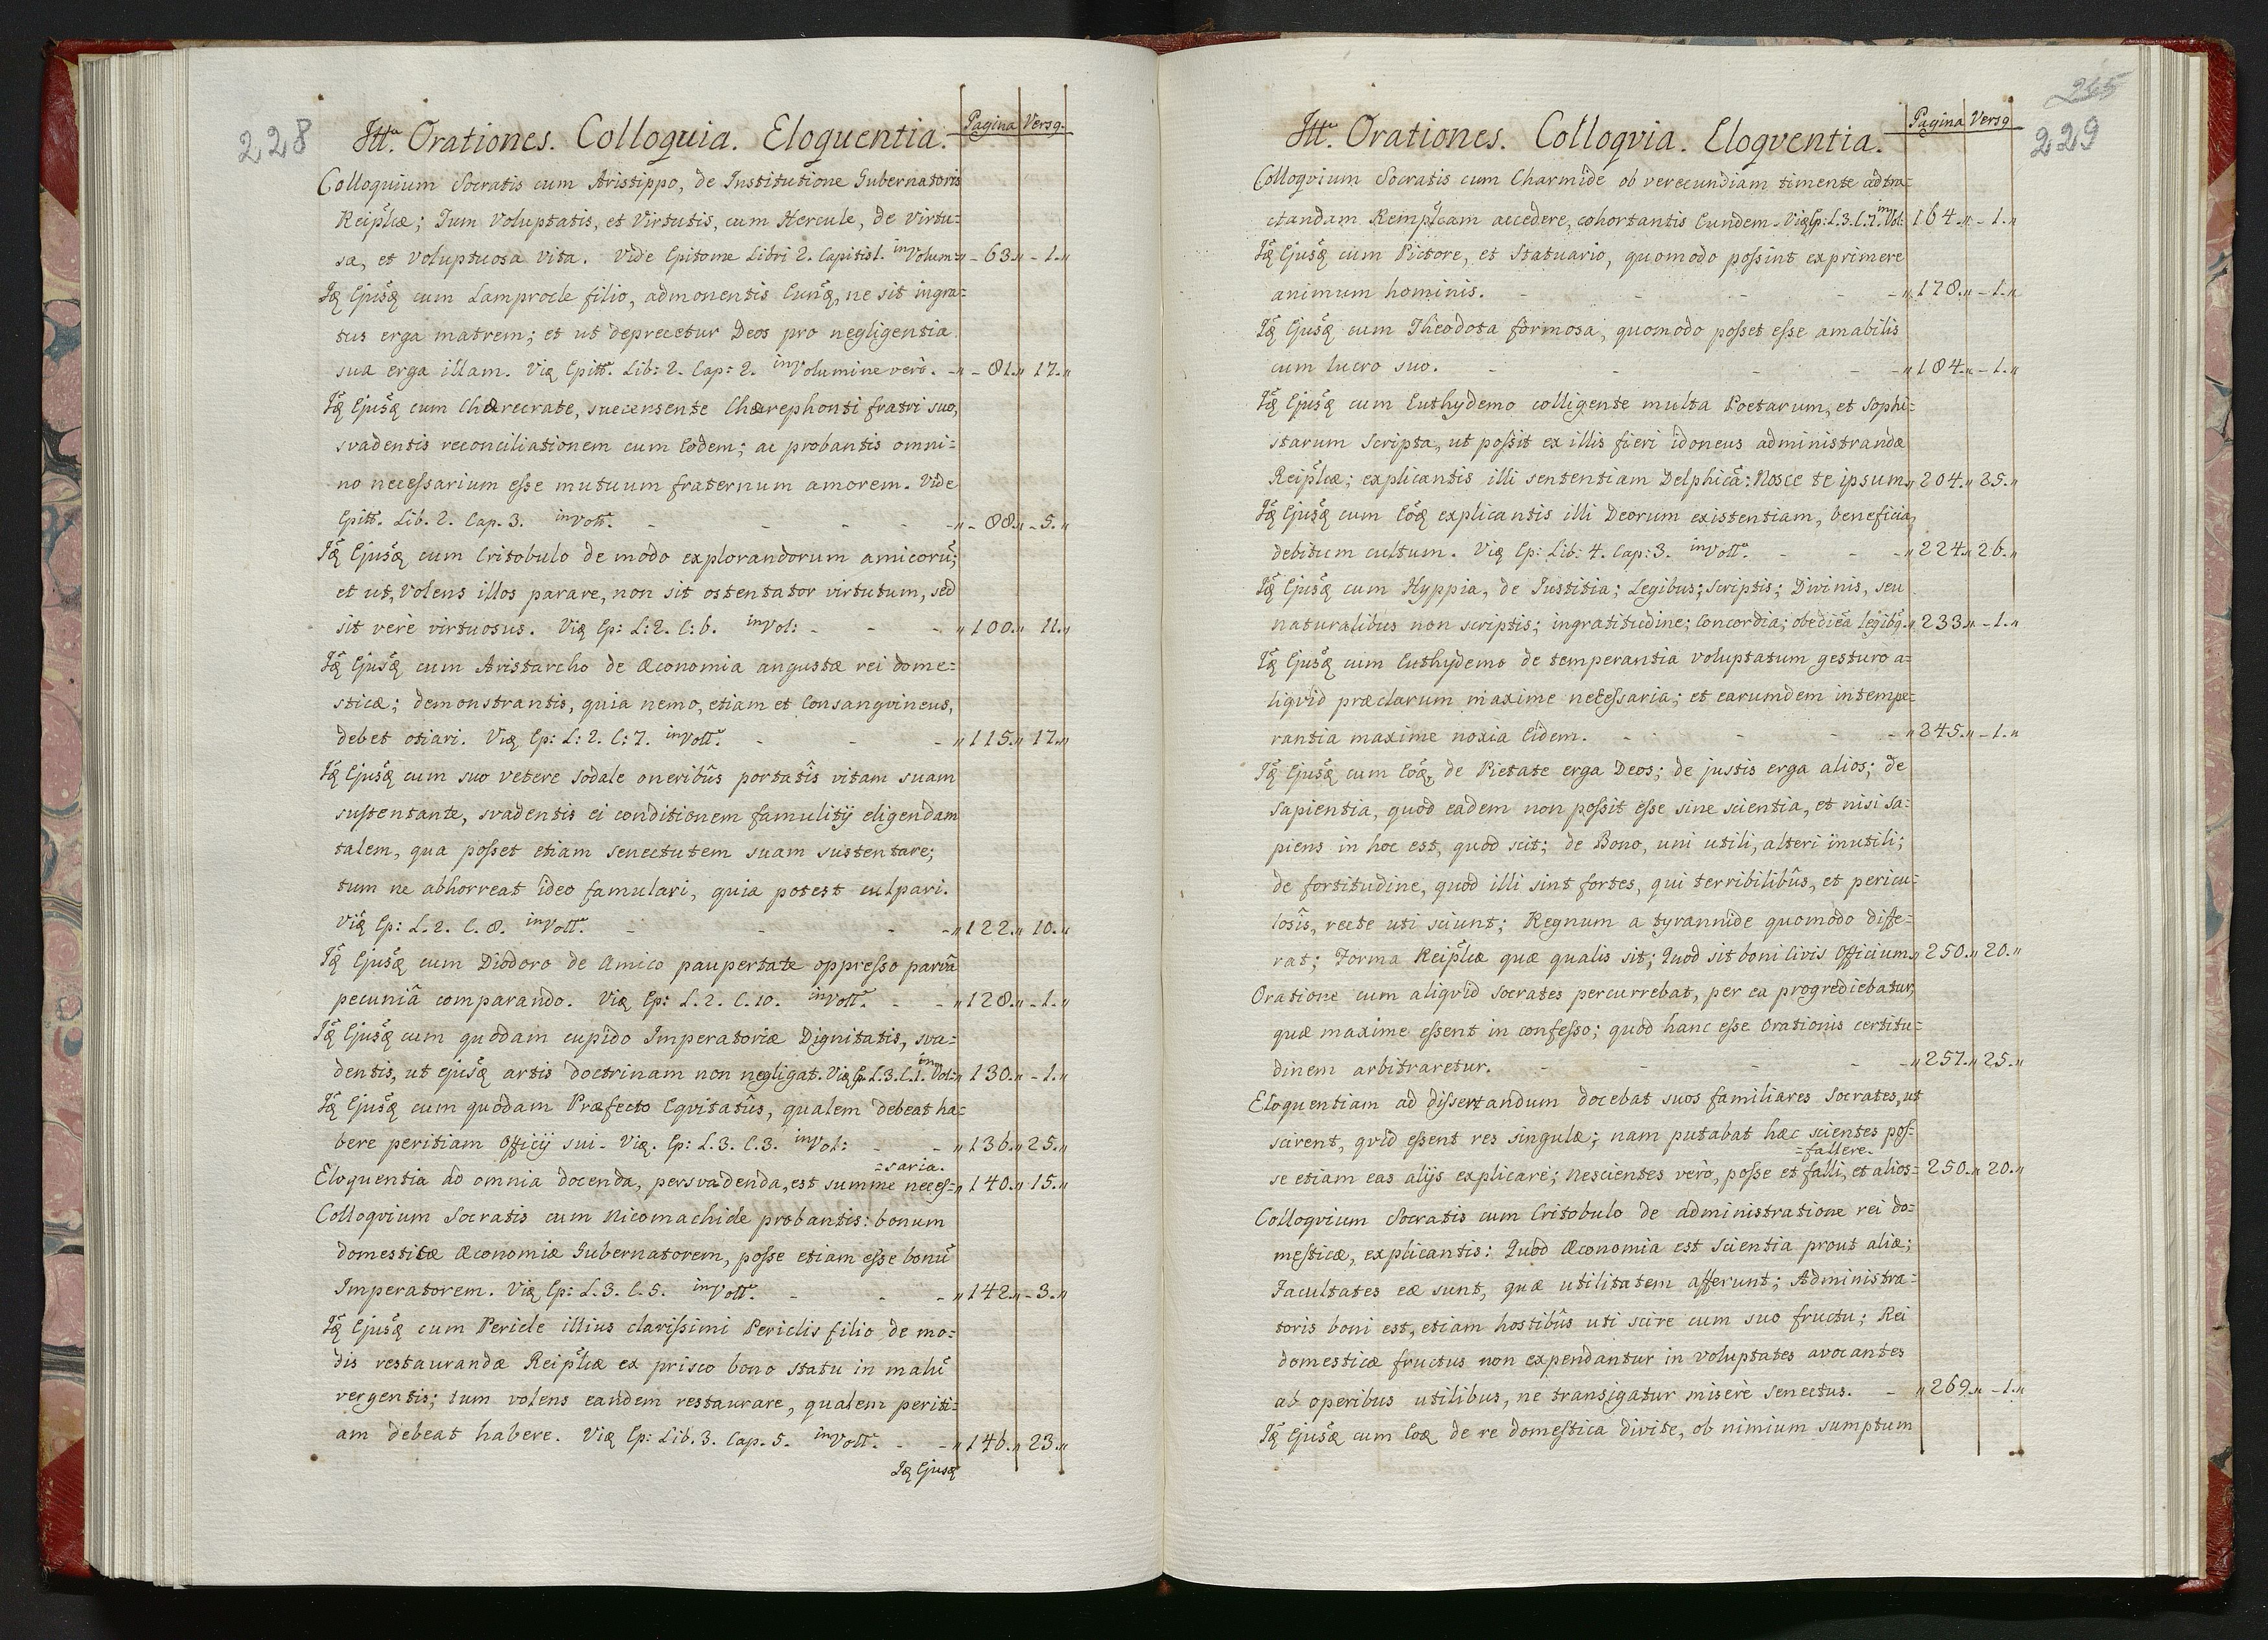 228
Itt.ª Orationes. Colloquia. Eloquentia. Pagina Versq.
Colloquium Socratis cum Aristippo, de Institutione Gubernatoris
Reiplcæ; Tum Voluptatis, et Virtutis, cum Hercule, de Virtu=
sa, et Voluptuosa vita. Vide Epitome Libri 2. Capitis 1. in Volum: „- 63.„ - 1.„
Iq̃ Ejusq̃ cum Lamprocle filio, admonentis Eunq̃, ne sit ingra=
tus erga matrem; et ut deprecetur Deos pro negligentia
sua erga illam. Viq Epitt. Lib: 2. Cap: 2. in Volumine verò. - „- 81.„ 17.„
Iq̃ Ejusq̃ cum Chærecrate, succensente Chærephonti fratri suo,
svadentis reconciliationem cum Eodem; ac probantis omni=
no necessarium esse mutuum fraternum amorem. Vide
Epitt. Lib. 2. Cap. 3. in Voll. - - - - „- 88.„ - 5.„
Iq̃ Ejusq̃ cum Critobulo de modo explorandorum amicorũ;
et ut, Volens illos parare, non sit ostentator virtutum, sed
sit verè virtuosus. Viq Ep: L: 2. C: 6. in Vol: - - - „100.„ 11.„
Iq̃ Ejusq̃ cum Aristarcho de Œconomia angustæ rei dome=
sticæ; demonstrantis, quia nemo, etiam et Consangvineus,
debet otiari. Viq Ep: L: 2. C: 7. in Voll. - - - „115.„ 17.„
Iq̃ Ejusq̃ cum suo vetere sodale oneribûs portatîs vitam suam
sustentante, svadentis ei conditionem famulitij eligendam
talem, qua posset etiam senectutem suam sustentare;
tum ne abhorreat ideo famulari, quia potest culpari.
Viq Ep: L. 2. C. 8. in Voll. - - - - „122.„ 10.„
Iq̃ Ejusq̃ cum Diodoro de Amico paupertate oppresso parvâ
pecuniâ comparando. Viq Ep: L. 2. C. 10. in Voll. - - „128.„ - 1.„
Iq̃ Ejusq̃ cum quodam cupido Imperatoriæ Dignitatis, sva=
dentis, ut ejusq̃ artis doctrinam non negligat. Viq Ep. L. 3. C. 1. in Vol: „130.„ - 1.„
Iq̃ Ejusq̃ cum quodam Præfecto Eqvitatûs, qualem debeat ha=
bere peritiam Officij sui. Viq. Ep: L. 3. C. 3. in Vol: - - „136.„ 25.„
=saria.
Eloquentia ad omnia docenda, persvadenda, est summe neces= „140.„ 15.„
Colloqvium Socratis cum Nicomachide probantis: bonum
domesticæ Œconomiæ Gubernatorem, posse etiam esse bonũ
Imperatorem. Viq Ep: L. 3. C. 5. in Voll. - - - „142.„ - 3.„
Iq̃ Ejusq̃ cum Pericle illius clarissimi Periclis filio de mo=
dis restaurandæ Reiplcæ ex prisco bono statu in malũ
vergentis; tum volens eandem restaurare, qualem periti=
am debeat habere. Viq Ep: Lib. 3. Cap. 5. in Voll. - - „146.„ 23.„
Iq Ejusq
229
Itt.ª Orationes. Colloqvia. Eloqventia. Pagina Versq
Colloqvium Socratis cum Charmide ob verecundiam timente ad tra=
ctandam Remplcam accedere, cohortantis Eundem. Viq Ep: L. 3. C. 7. in Vol: 164.„ - 1.„
Iq̃ Ejusq̃ cum Pictore, et Statuario, quomodo possint exprimere
animum hominis. - - - - „178.„ - 1.„
Iq̃ Ejusq̃ cum Theodota formosa, quomodo posset esse amabilis
cum lucro suo. - - - - „184.„ - 1.„
Iq̃ Ejusq̃ cum Euthydemo colligente multa Poetarum, et Sophi=
starum Scripta, ut possit ex illis fieri idoneus administrandæ
Reiplcæ; explicantis illi sententiam Delphicã: Nosce te ipsum. „204.„ 25.„
Iq̃ Ejusq̃ cum Eoq̃ explicantis illi Deorum existentiam, beneficia,
debitum cultum. Viq Ep: Lib: 4. Cap: 3. in Voll. - - - „224.„ 26.„
Iq̃ Ejusq̃ cum Hyppia, de Iustitia; Legibus; scriptis; Divinis, seu
naturalibus non scriptis; ingratitudine; concordia; obediẽa legibq. „233.„ - 1.„
Iq̃ Ejusq̃ cum Euthydemo de temperantia voluptatum gesturo a=
liqvid præclarum maxime necessaria; et earumdem intempe=
rantia maxime noxia Eidem. - - - - „245.„ - 1.„
Iq̃ Ejusq̃ cum Eoq̃, de Pietate erga Deos; de justis erga alios; de
sapientia, quod eadem non possit esse sine scientia, et nisi sa=
piens in hoc est, quod scit; de Bono, uni utili, alteri inutili;
de fortitudine, quod illi sint fortes, qui terribilibûs, et pericu=
losîs, recte uti sciunt; Regnum a tyrannide quomodo diffe=
rat; Forma Reiplcæ quæ qualis sit; Quod sit boni Civis Officium. „250.„ 20.„
Oratione cum aliqvid Socrates percurrebat, per ea progrediebatur,
quæ maxime essent in confesso; quod hanc esse Orationis certitu=
dinem arbitraretur. - - - - „257.„ 25.„
Eloquentiam ad dissertandum docebat suos familiares Socrates, ut
scirent, qvid essent res singulæ; nam putabat hæc scientes pos=
=fallere.
se etiam eas alijs explicare; Nescientes verò, posse et falli, et alios= 250.„ 20.„
Colloqvium Socratis cum Critobulo de administratione rei do=
mesticæ, explicantis: Quod Œconomia est scientia prout aliæ;
Facultates eæ sunt, quæ utilitatem afferunt; Administra=
toris boni est, etiam hostibûs uti scire cum suo fructu; Rei
domesticæ fructus non expendantur in voluptates avocantes
ab operibus utilibus, ne transigatur miserè senectus. - „269.„ - 1.„
Iq̃ Ejusq̃ cum Eoq de re domestica divite, ob nimium sumptum